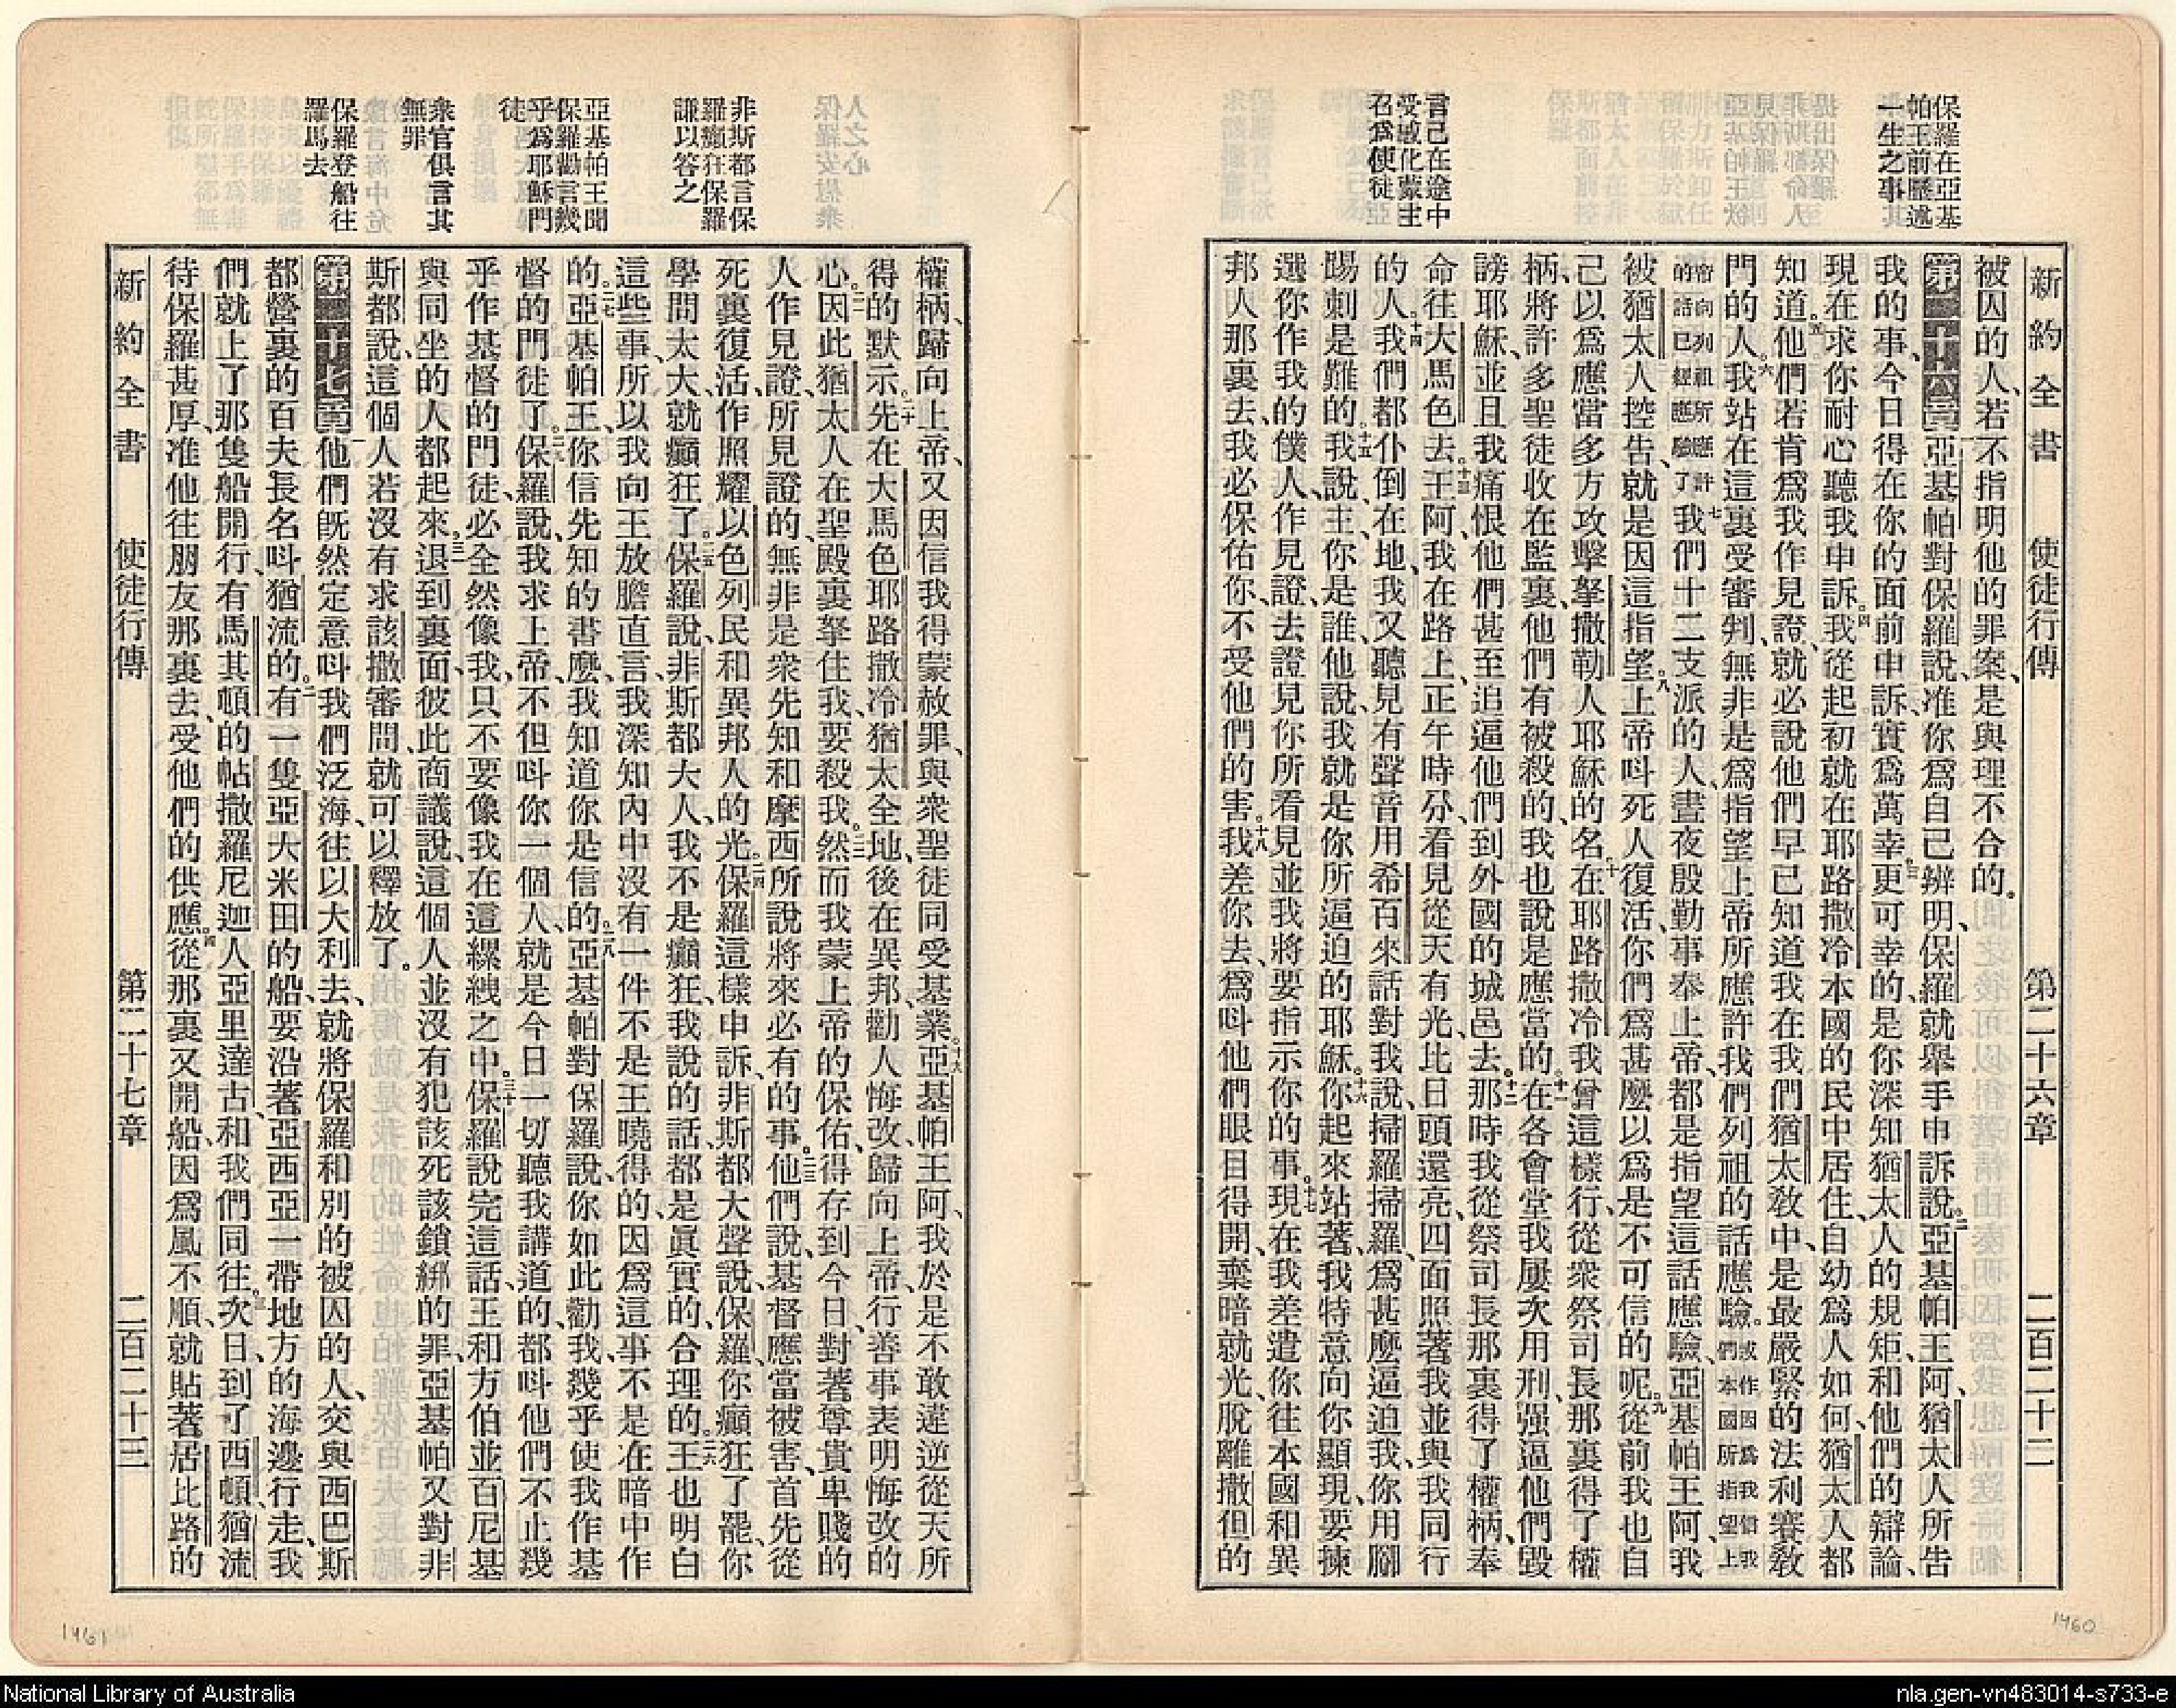 保羅在亞基
帕王前歷述
一生之事
言己在途中
受感化蒙主
召爲使徒
新約全書 使徒行傳 第二十六章 二百二十二
被囚的人、若不指明他的罪案、是與理不合的。
第二十六章 一亞基帕對保羅說、准你爲自己辨明、保羅就舉手申訴說。二亞基帕王阿、猶太人所告
我的事、今日得在你的面前申訴、實爲萬幸。三更可幸的、是你深知猶太人的規矩、和他們的辯論、
現在求你耐心聽我申訴。四我從起初就在耶路撒冷本國的民中居住、自幼爲人如何、猶太人都
知道。五他們若肯爲我作見證、就必說他們早已知道我在我們猶太敎中、是最嚴緊的法利賽敎
門的人。六我站在這裏受審判、無非是爲指望上帝所應許我們列祖的話應驗。或作因爲我信我們本國所指望上
帝向列祖所應許的話已經應驗了七我們十二支派的人、晝夜殷勤事奉上帝、都是指望這話應驗、亞基帕王阿、我
被猶太人控告、就是因這指望。八上帝呌死人復活、你們爲甚麽以爲是不可信的呢。九從前我也自
己以爲應當多方攻擊拏撒勒人耶穌的名。十在耶路撒冷我曾這樣行、從衆祭司長那裏得了權
柄、將許多聖徒收在監裏、他們有被殺的、我也說是應當的。十一在各會堂我屢次用刑、强逼他們毀
謗耶穌、並且我痛恨他們甚至追逼他們到外國的城邑去。十二那時我從祭司長那裏得了權柄、奉
命往大馬色去。十三王阿、我在路上、正午時分、看見從天有光、比日頭還亮、四面照著我並與我同行
的人。十四我們都仆倒在地、我又聽見有聲音用希百來話對我說、掃羅掃羅、爲甚麽逼迫我、你用腳
踢刺是難的。十五我說、主、你是誰、他說、我就是你所逼迫的耶穌。十六你起來站著、我特意向你顯現、要揀
選你作我的僕人、作見證、去證見你所看見並我將要指示你的事。十七現在我差遣你往本國和異
邦人那裏去、我必保佑你、不受他們的害。十八我差你去、爲呌他們眼目得開、棄暗就光、脫離撒但的
1460
非斯都言保
羅癲狂保羅
謙以答之
亞基帕王聞
保羅勸言幾
乎爲耶穌門
徒
衆官俱言其
無罪
保羅登船往
羅馬去
權柄、歸向上帝、又因信我得蒙赦罪、與衆聖徒同受基業。十九亞基帕王阿、我於是不敢違逆從天所
得的默示。二十先在大馬色耶路撒冷猶太全地、後在異邦、勸人悔改、歸向上帝、行善事表明悔改的
心。二一因此猶太人在聖殿裏拏住我、要殺我。二二然而我蒙上帝的保佑、得存到今日、對著尊貴卑賤的
人作見證、所見證的、無非是衆先知和摩西所說將來必有的事。二三他們說、基督應當被害、首先從
死裏復活、作照耀以色列民和異邦人的光。二四保羅這樣申訴、非斯都大聲說、保羅、你癲狂了罷、你
學問太大、就癲狂了。二五保羅說、非斯都大人、我不是癲狂、我說的話、都是眞實的、合理的。二六王也明白
這些事、所以我向王放膽直言、我深知內中沒有一件不是王曉得的、因爲這事不是在暗中作
的。二七亞基帕王、你信先知的書麽、我知道你是信的。二八亞基帕對保羅說、你如此勸我、幾乎使我作基
督的門徒了。二九保羅說、我求上帝、不但呌你一個人、就是今日一切聽我講道的、都呌他們不止幾
乎作基督的門徒、必全然像我、只不要像我在這縲絏之中。三十保羅說完這話、王和方伯並百尼基
與同坐的人都起來。三一退到裏面、彼此商議說、這個人並沒有犯該死該鎖綁的罪、亞基帕又對非
斯都說、這個人若沒有求該撒審問、就可以釋放了。
第二十七章 一他們旣然定意呌我們泛海、往以大利去、就將保羅和別的被囚的人、交與西巴斯
都營裏的百夫長名呌猶流的。二有一隻亞大米田的船、要沿著亞西亞一帶地方的海邊行走、我
們就上了那隻船開行、有馬其頓的帖撒羅尼迦人亞里達古、和我們同往。三次日、到了西頓、猶流
待保羅甚厚、准他往朋友那裏去、受他們的供應。四從那裏又開船、因爲風不順、就貼著居比路的
新約全書 使徒行傳 第二十七章 二百二十三
1461
National Library of Australia
nla.gen-vn483014-s733-e